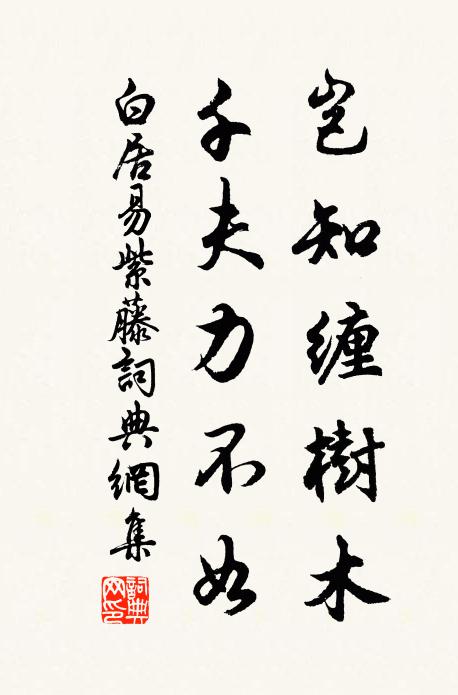 岂知缠樹木
千夫力不如
白居易紫藤詞典網集
詞典网印